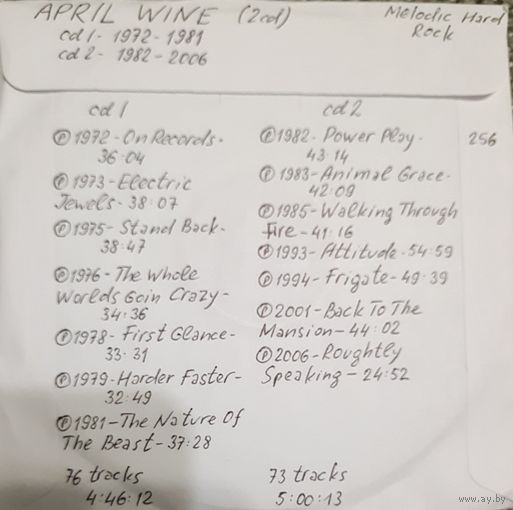 APRIL WINE (2cd)
Melodic Hard
Rock
cd 1 - 1972 - 1981
cd 2 - 1982 - 2006
cd 1
Ⓟ 1972 - On Records -
36:04
Ⓟ 1973 - Electric
Jewels - 38:07
Ⓟ 1975 - Stand Back -
38:47
Ⓟ 1976 - The Whole
Worlds Goin Crazy -
34:36
Ⓟ 1978 - First Glance -
33:31
Ⓟ 1979 - Harder Faster -
32:49
Ⓟ 1981 - The Nature Of
The Beast - 37:28
76 tracks
4:46:12
cd 2
Ⓟ 1982 - Power Play -
43:14
Ⓟ 1983 - Animal Grace -
42:09
Ⓟ 1985 - Walking Through
Fire - 41:16
Ⓟ 1993 - Attitude - 54:59
Ⓟ 1994 - Frigate - 49:39
Ⓟ 2001 - Back To The
Mansion - 44:02
Ⓟ 2006 - Roughtly
Speaking - 24:52
73 tracks
5:00:13
256
www.ay.by